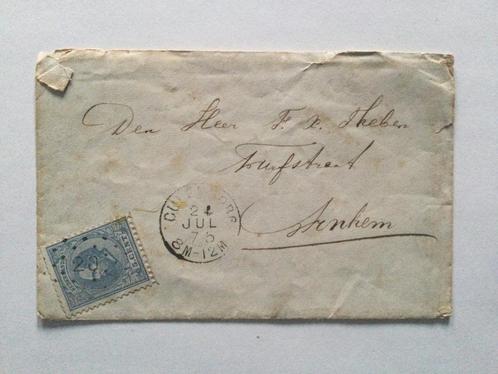 Den Heer F. x. Theben
Turfstraat
Arnhem
CULEMBORG
24
JUL
75
8M-12M